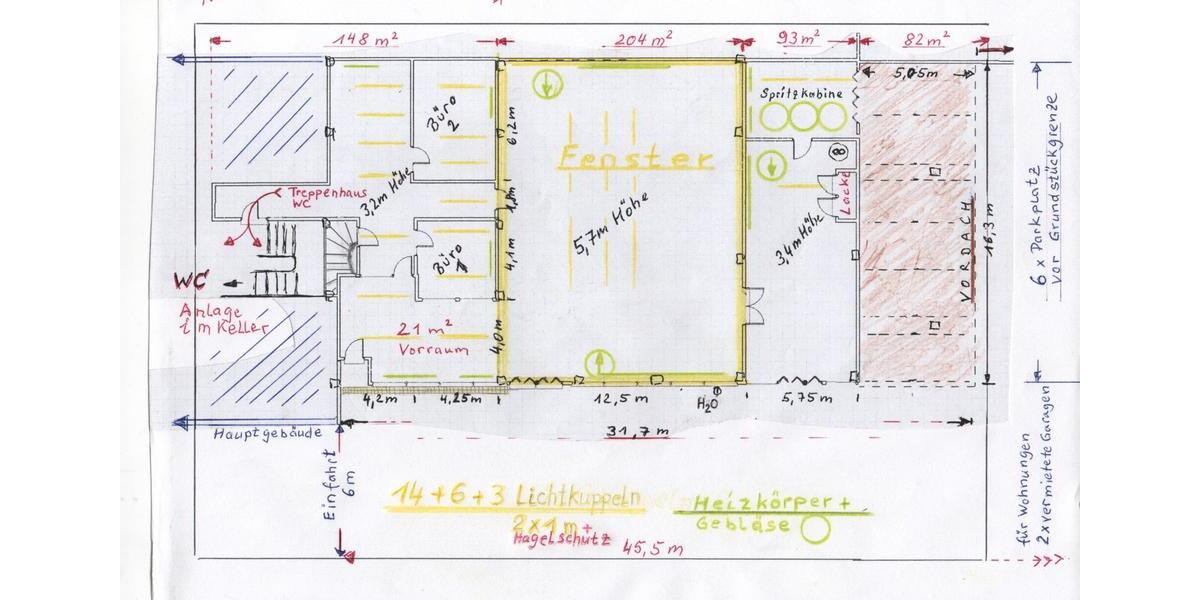 148 m²
204 m²
93 m²
82 m²
5,05m
Büro
2
6,2m
Spritzkabine
Fenster
3,2m Höhe
Treppenhaus
WC
1,8m
5,7m Höhe
Lacke
3,4m Höhe
Büro
1
4,1m
VORDACH
16,3 m
6 x Parkplatz
vor Grundstückgrenze
WC
Anlage
im Keller
21 m²
Vorraum
4,0m
4,2m
4,25m
12,5 m
H₂O
5,75m
Hauptgebäude
31,7 m
Einfahrt
6m
14 + 6 + 3 Lichtkuppeln
2 x 1 m +
Hagelschutz
Heizkörper +
Gebläse
45,5 m
für Wohnungen
2 x vermietete Garagen